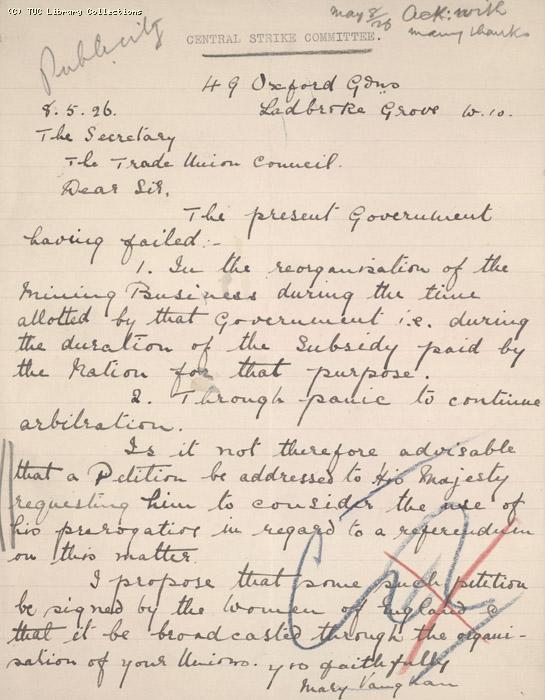 (C) TUC Library Collections
may 8/26 Ack: with
many thanks
Publicity
CENTRAL STRIKE COMMITTEE.
49 Oxford Gdns
8.5.26. Ladbroke Grove W.10.
The Secretary
The Trade Union Council.
Dear Sir,
The present Government
having failed:-
1. In the reorganisation of the
Mining Business during the time
allotted by that Government i.e. during
the duration of the Subsidy paid by
the Nation for that purpose.
2. Through panic to continue
arbitration.
Is it not therefore advisable
that a Petition be addressed to His Majesty
requesting him to consider the use of
his prerogative in regard to a referendum
on this matter.
I propose that some such petition
be signed by the women of England &
that it be broadcasted through the organi-
sation of your Unions. yrs faithfully
Mary Vaughan